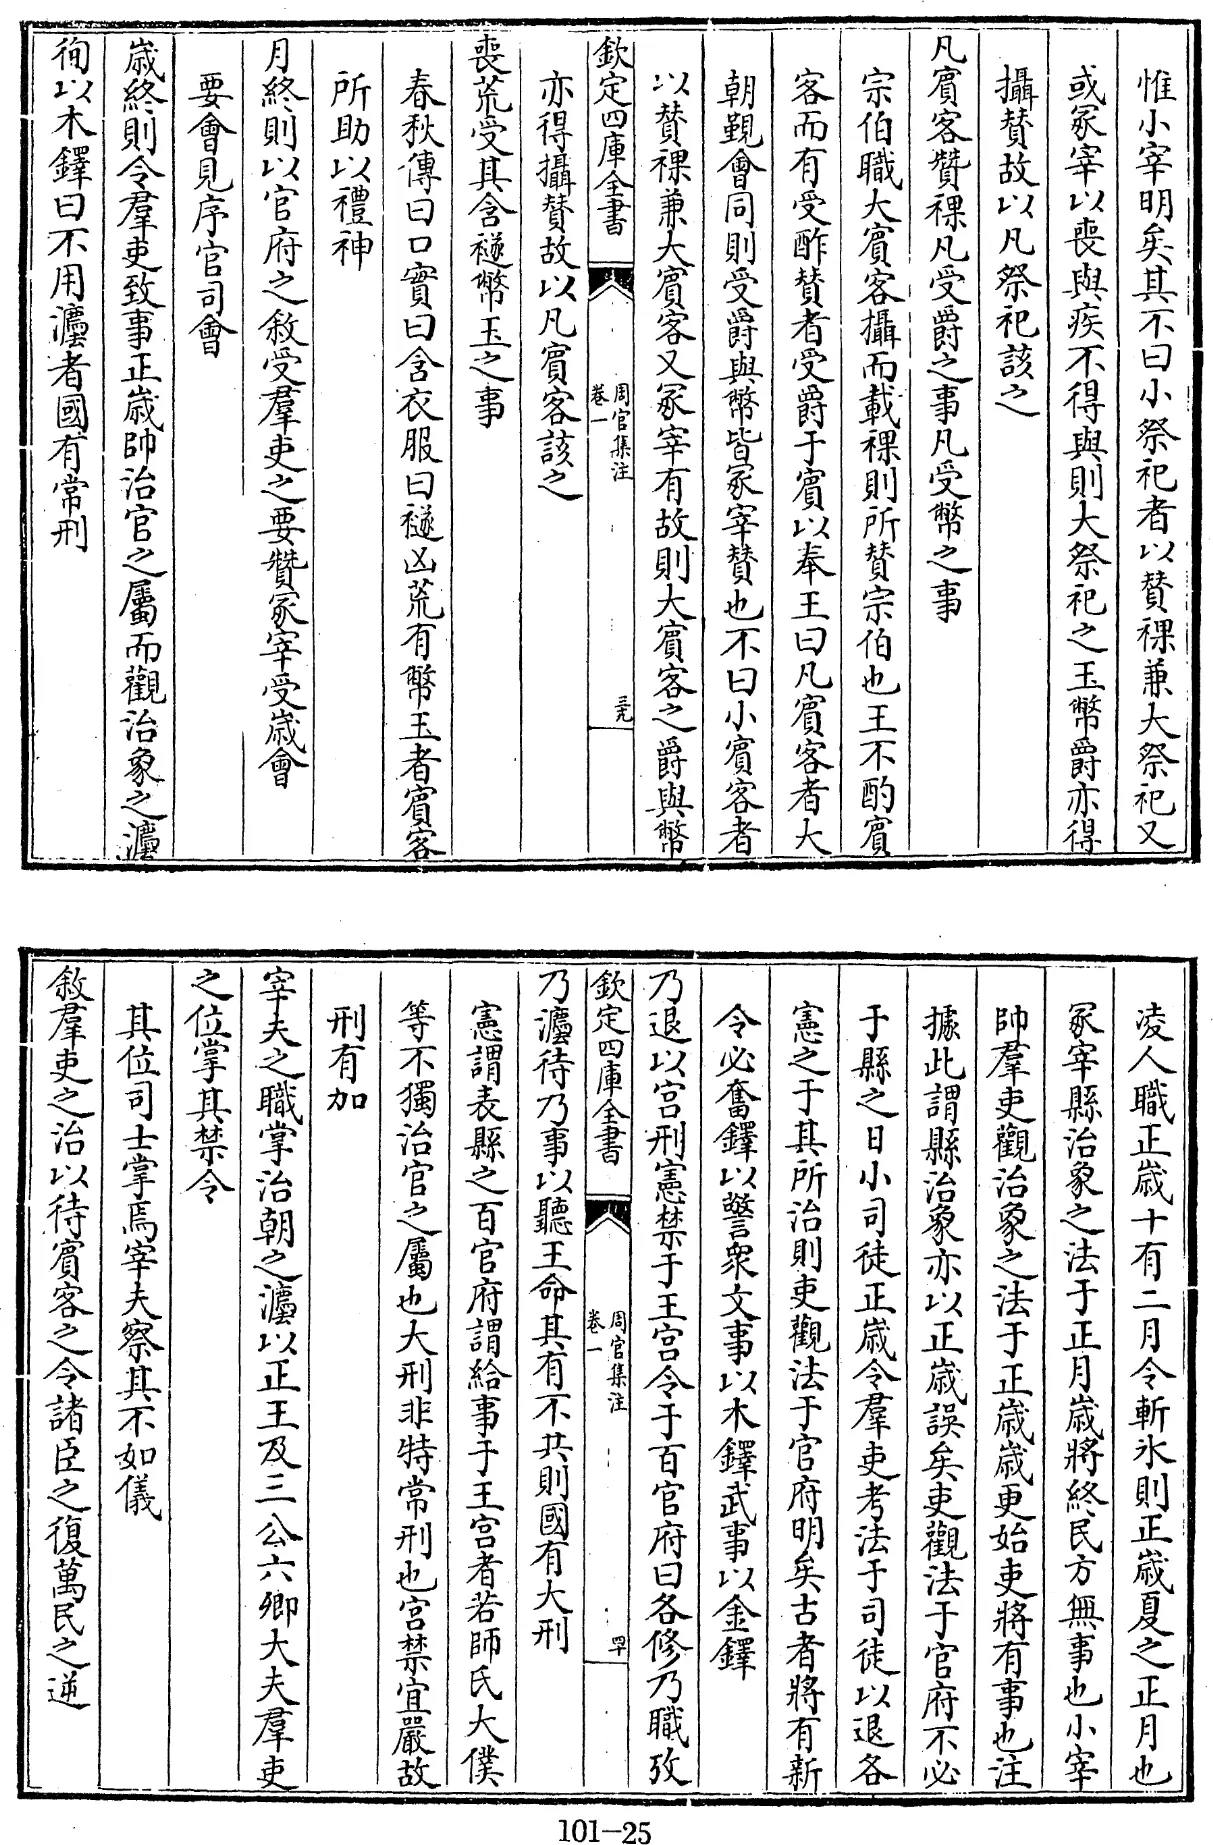 惟小宰明矣其不曰小祭祀者以賛祼兼大祭祀又
或冢宰以喪與疾不得與則大祭祀之玉幣爵亦得
攝賛故以凡祭祀該之
凡賓客贊祼凡受爵之事凡受幣之事
宗伯職大賓客攝而載祼則所賛宗伯也王不酌賓
客而有受酢賛者受爵于賓以奉王曰凡賓客者大
朝覲會同則受爵與幣皆冢宰賛也不曰小賓客者
以賛祼兼大賓客又冢宰有故則大賓客之爵與幣
欽定四庫全書
周官集注
卷一
三九
亦得攝賛故以凡賓客該之
喪荒受其含襚幣玉之事
春秋傳曰口實曰含衣服曰襚凶荒有幣玉者賓客
所助以禮神
月終則以官府之敘受羣吏之要贊冢宰受歲會
要會見序官司會
歲終則令羣吏致事正歲帥治官之屬而觀治象之灋
徇以木鐸曰不用灋者國有常刑
凌人職正歲十有二月令斬氷則正歲夏之正月也
冢宰縣治象之法于正月歲將終民方無事也小宰
帥羣吏觀治象之法于正歲歲更始吏將有事也注
據此謂縣治象亦以正歲誤矣吏觀法于官府不必
于縣之日小司徒正歲令羣吏考法于司徒以退各
憲之于其所治則吏觀法于官府明矣古者將有新
令必奮鐸以警衆文事以木鐸武事以金鐸
乃退以宫刑憲禁于王宫令于百官府曰各修乃職攷
欽定四庫全書
周官集注
卷一
四十
乃灋待乃事以聽王命其有不共則國有大刑
憲謂表縣之百官府謂給事于王宫者若師氏大僕
等不獨治官之屬也大刑非特常刑也宫禁宜嚴故
刑有加
宰夫之職掌治朝之灋以正王及三公六卿大夫羣吏
之位掌其禁令
其位司士掌焉宰夫察其不如儀
敘羣吏之治以待賓客之令諸臣之復萬民之逆
101-25